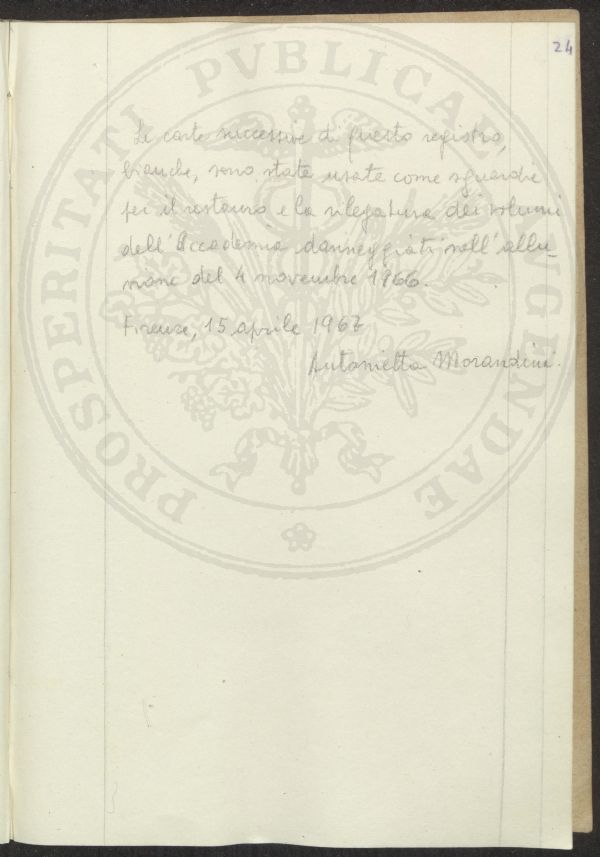 24
Le carte successive di questo registro,
bianche, sono state usate come sguardie
per il restauro e la rilegatura dei volumi
dell'Accademia danneggiati nell'allu-
vione del 4 novembre 1966.
Firenze, 15 aprile 1967
Antonietta Morandini.
PROSPERITATI PVBLICAE AVGENDAE